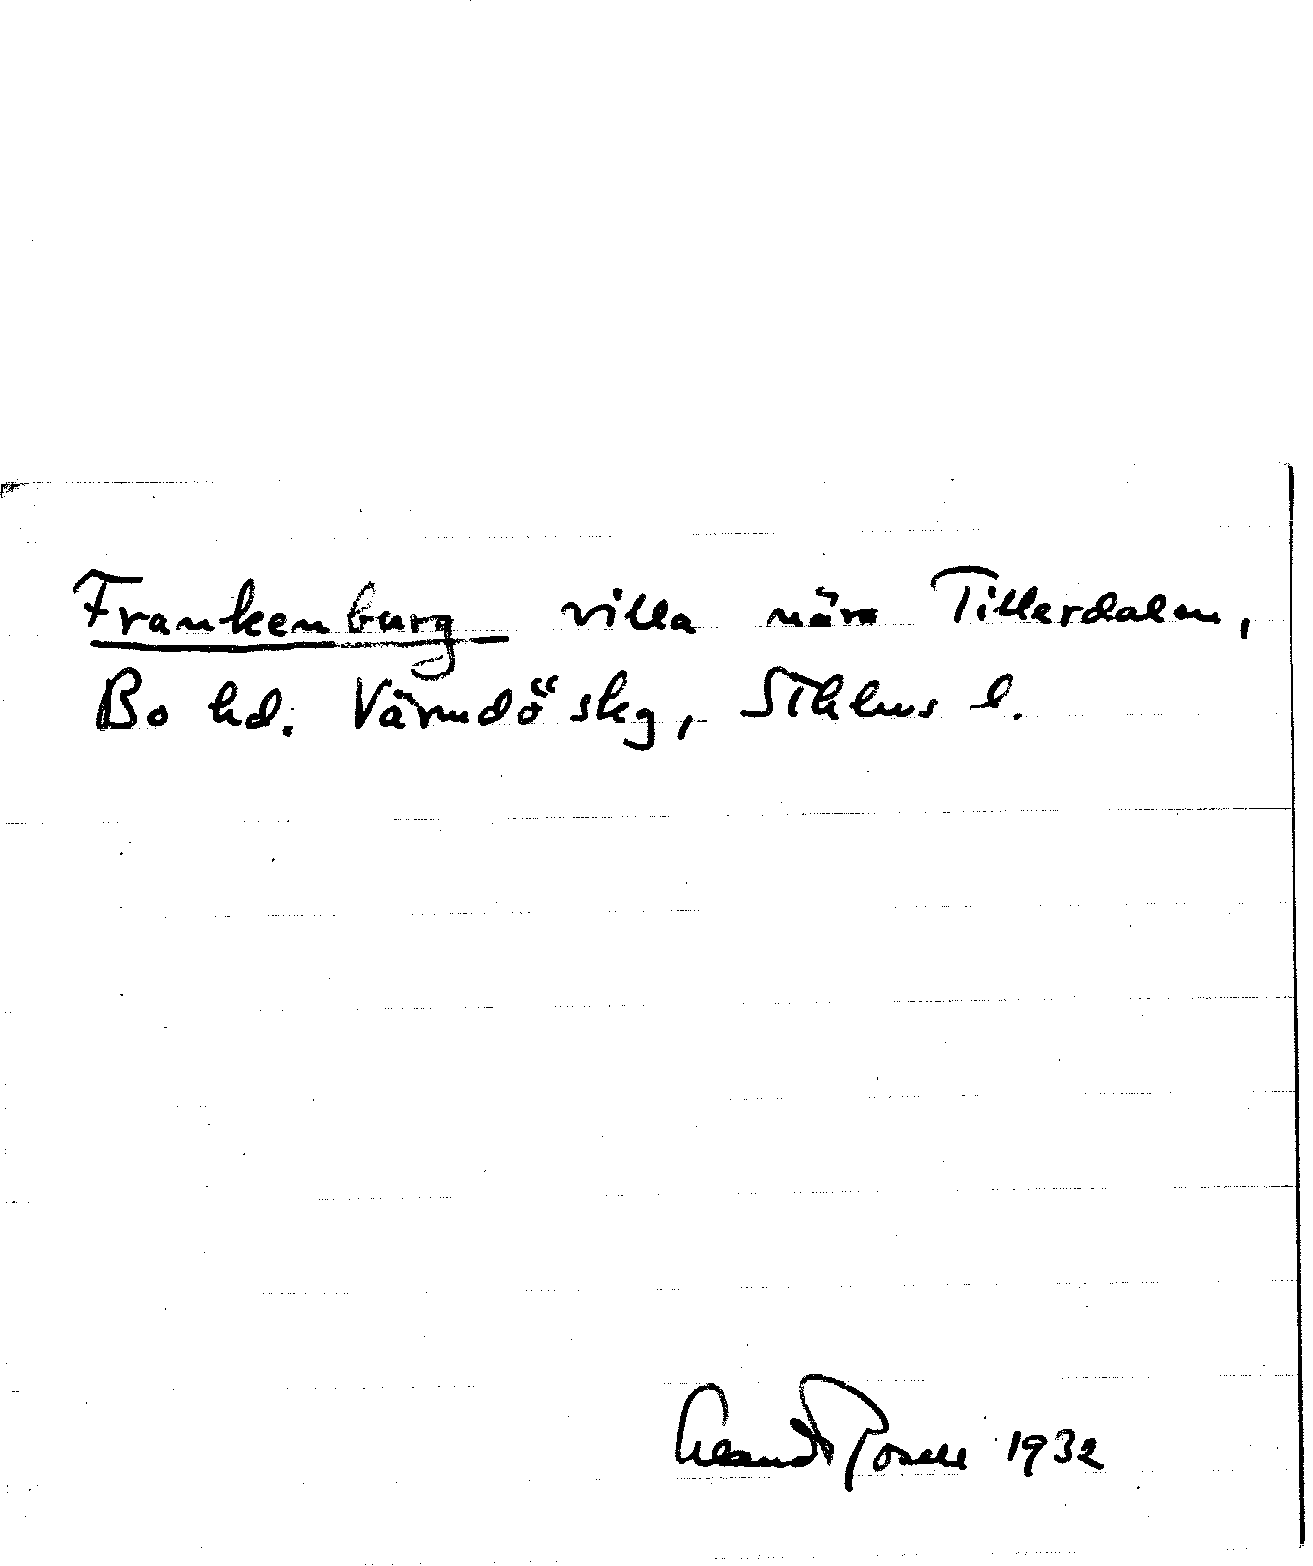 Frankenburg villa nära Tillerdalen,
Bo hd. Värmdö skg, Sthlms l.
1932